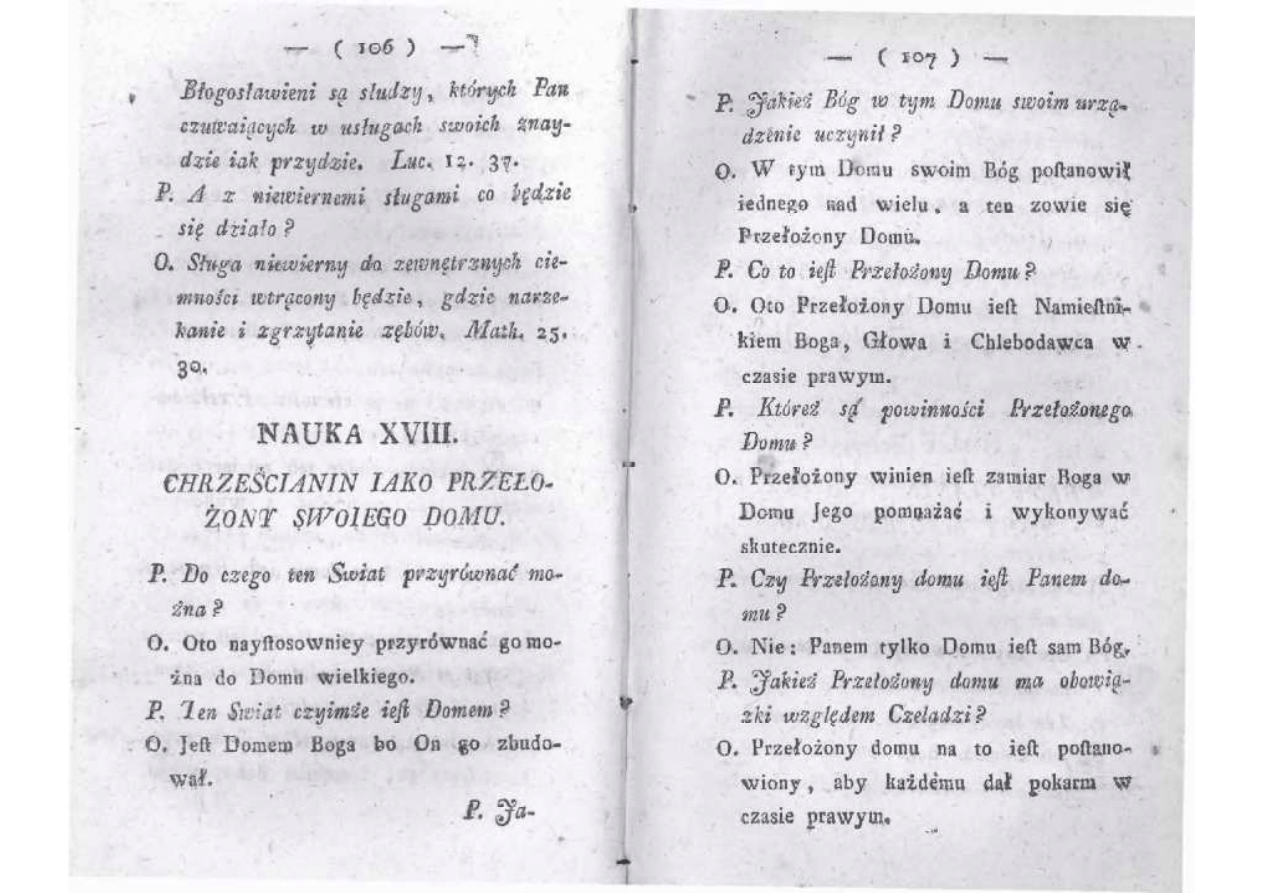 — ( 106 ) —
Błogosławieni są słudzy, których Pan
czuwaiących w usługach swoich znay-
dzie iak przydzie. Luc. 12. 37.
P. A z niewiernemi sługami co będzie
się działo?
O. Sługa niewierny do zewnętrznych cie-
mności wtrącony będzie, gdzie narze-
kanie i zgrzytanie zębów. Math. 25.
30.
NAUKA XVIII.
CHRZEŚCIANIN IAKO PRZEŁO-
ŻONY SWOIEGO DOMU.
P. Do czego ten Swiat przyrównać mo-
żna?
O. Oto nayſtosowniey przyrównać go mo-
żna do Domu wielkiego.
P. Ten Swiat czyimże ieſt Domem?
O. Jeſt Domem Boga bo On go zbudo-
wał.
P. Ja-
— ( 107 ) —
P. Jakież Bóg w tym Domu swoim urzą-
dzenie uczynił?
O. W tym Domu swoim Bóg poſtanowił
iednego nad wielu, a ten zowie się
Przełożony Domu.
P. Co to ieſt Przełożony Domu?
O. Oto Przełożony Domu ieſt Namieſtni-
kiem Boga, Głowa i Chlebodawca w
czasie prawym.
P. Któreż są powinności Przełożonego
Domu?
O. Przełożony winien ieſt zamiar Boga w
Domu Jego pomnażać i wykonywać
skutecznie.
P. Czy Przełożony domu ieſt Panem do-
mu?
O. Nie: Panem tylko Domu ieſt sam Bóg.
P. Jakież Przełożony domu ma obowią-
zki względem Czeladzi?
O. Przełożony domu na to ieſt poſtano-
wiony, aby każdému dał pokarm w
czasie prawym.